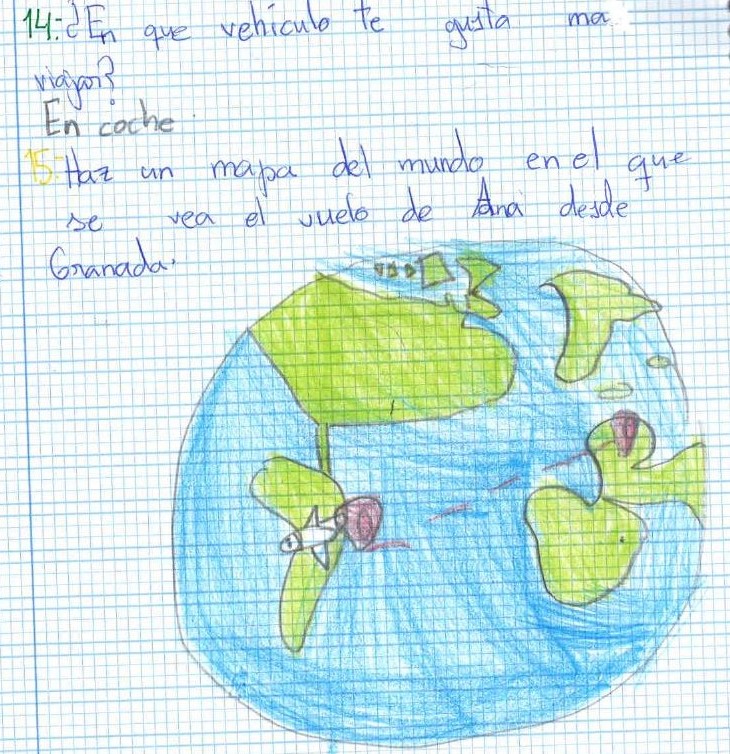 14:-¿En que vehículo te gusta ma
viajar?
En coche
15:-Haz un mapa del mundo en el que
se vea el vuelo de Ana desde
Granada.